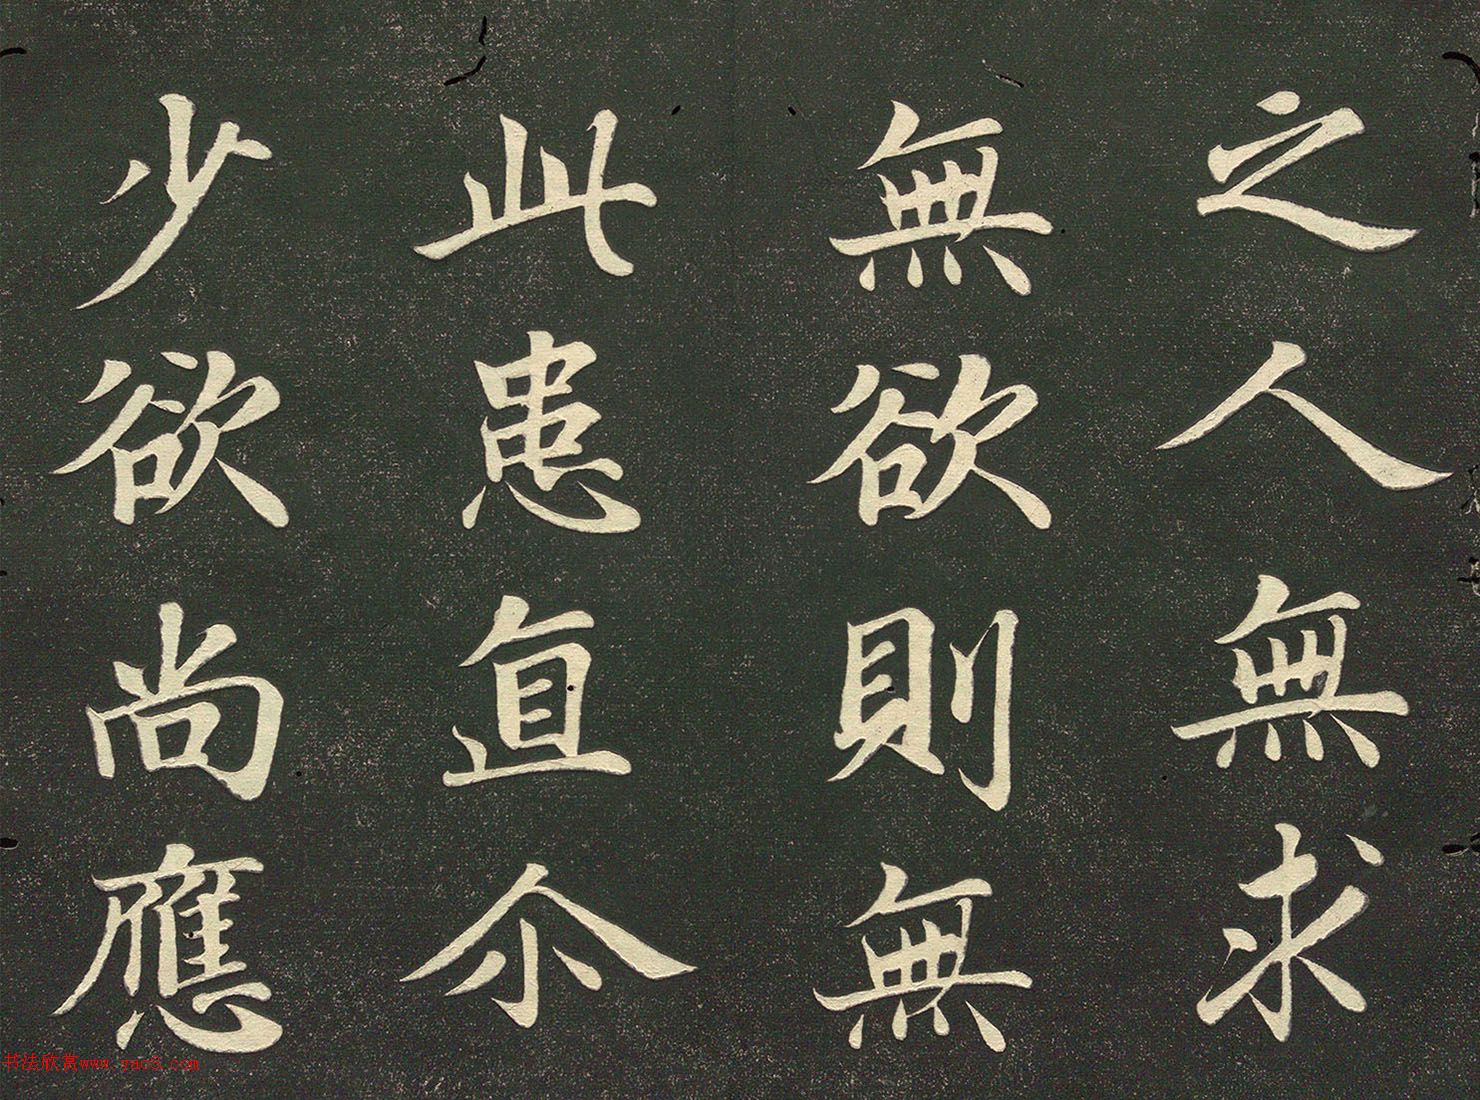 之人無求
無欲則無
此患直尒
少欲尚應
书法欣赏www.yac8.com